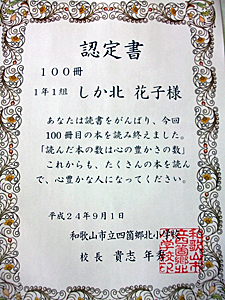 認定書
100冊
1年1組 しか北 花子様
あなたは読書をがんばり、今回
100冊目の本を読み終えました。
「読んだ本の数は心の豊かさの数」
これからも、たくさんの本を読ん
で、心豊かな人になってください。
平成24年9月1日
和歌山市立四箇郷北小学校
校長 貴志 年秀